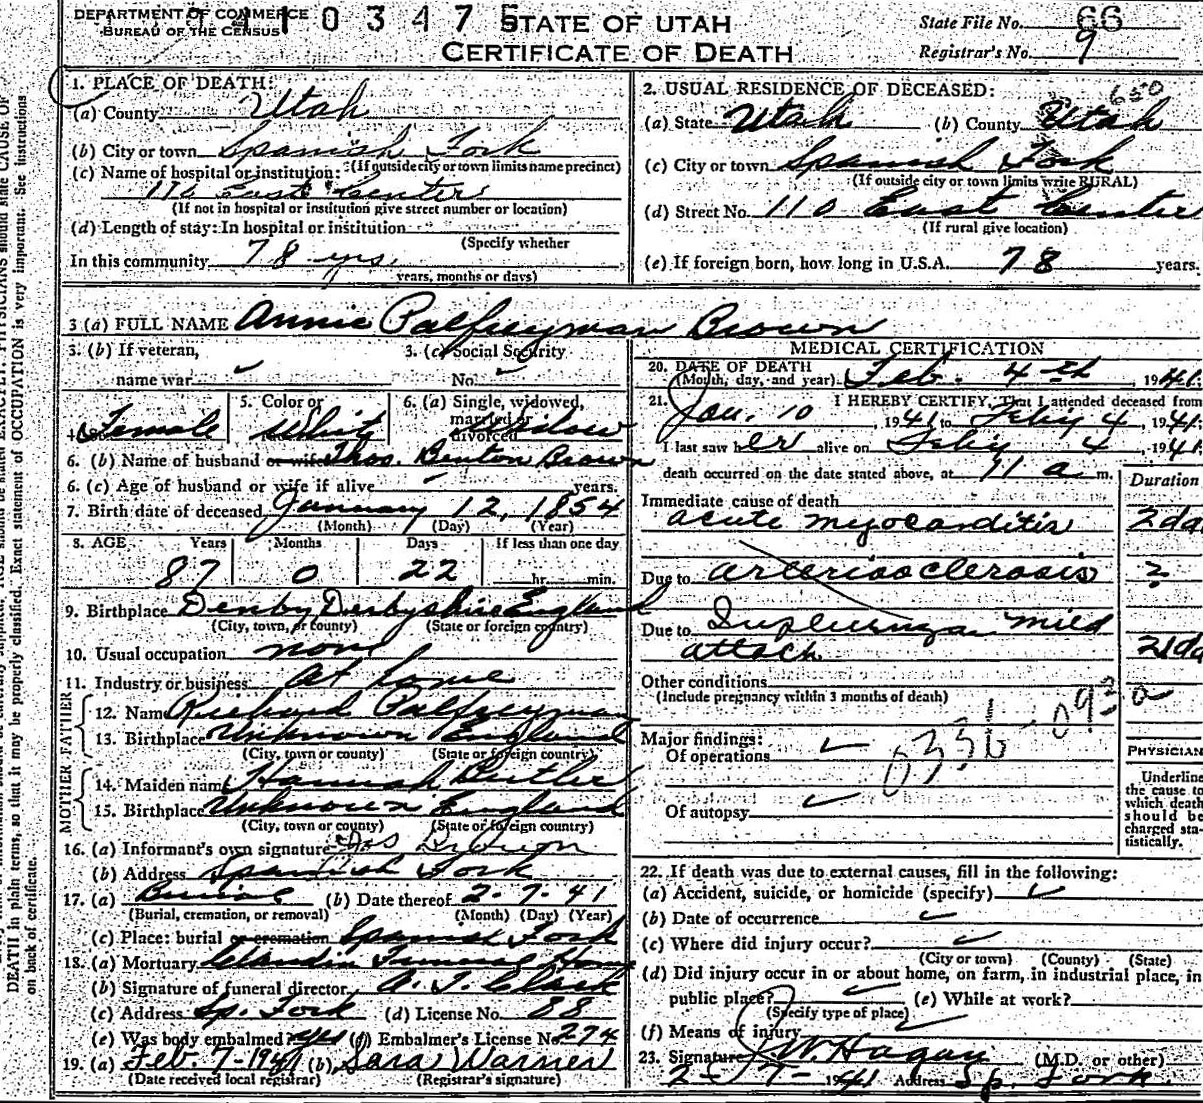 DEPARTMENT OF COMMERCE
BUREAU OF THE CENSUS
1 0 3 4 7 5
STATE OF UTAH
CERTIFICATE OF DEATH
State File No. 66
Registrar's No. 9
1. PLACE OF DEATH:
(a) County Utah
(b) City or town Spanish Fork
(If outside city or town limits name precinct)
(c) Name of hospital or institution:
110 East Center
(If not in hospital or institution give street number or location)
(d) Length of stay: In hospital or institution
(Specify whether
In this community 78 yrs.
years, months or days)
2. USUAL RESIDENCE OF DECEASED: 650
(a) State Utah (b) County Utah
(c) City or town Spanish Fork
(If outside city or town limits write RURAL)
(d) Street No. 110 East Center
(If rural give location)
(e) If foreign born, how long in U.S.A. 78 years.
3 (a) FULL NAME Annie Palfreyman Brown
3. (b) If veteran, 3. (c) Social Security
name war No.
5. Color or 6. (a) Single, widowed,
married or
Female White Widow
divorced
6. (b) Name of husband or wife Thos. Benton Brown
6. (c) Age of husband or wife if alive years.
7. Birth date of deceased January 12, 1854
(Month) (Day) (Year)
8. AGE Years Months Days If less than one day
87 0 22 hr. min.
9. Birthplace Denby Derbyshire England
(City, town, or county) (State or foreign country)
10. Usual occupation none
11. Industry or business At home
FATHER
12. Name Richard Palfreyman
13. Birthplace Unknown England
(City, town or county) (State or foreign country)
MOTHER
14. Maiden name Hannah Butler
15. Birthplace Unknown England
(City, town or county) (State or foreign country)
16. (a) Informant's own signature Brown
(b) Address Spanish Fork
17. (a) Burial (b) Date thereof 2-7-41
(Burial, cremation, or removal) (Month) (Day) (Year)
(c) Place: burial or cremation Spanish Fork
18. (a) Mortuary Claudin Funeral Home
(b) Signature of funeral director A. J. Clark
(c) Address Sp. Fork (d) License No. 88
(e) Was body embalmed? yes (f) Embalmer's License No. 274
19. (a) Feb. 7-1941 (b) Sara Warner
(Date received local registrar) (Registrar's signature)
MEDICAL CERTIFICATION
20. DATE OF DEATH
(Month, day, and year) Feb. 4th, 1941
21. I HEREBY CERTIFY, That I attended deceased from
Jan. 10, 1941 to Feby 4, 1941
I last saw her alive on Feby 4, 1941
death occurred on the date stated above, at 11 a m.
Duration
Immediate cause of death
acute myocarditis 2 da
Due to arteriosclerosis ?
Due to Influenza mild
attack 21 da
Other conditions
(Include pregnancy within 3 months of death)
Major findings:
Of operations
Of autopsy
PHYSICIAN
Underline
the cause to
which death
should be
charged sta-
tistically.
22. If death was due to external causes, fill in the following:
(a) Accident, suicide, or homicide (specify)
(b) Date of occurrence
(c) Where did injury occur?
(City or town) (County) (State)
(d) Did injury occur in or about home, on farm, in industrial place, in
public place? (e) While at work?
(Specify type of place)
(f) Means of injury
23. Signature J. W. Hagan (M.D. or other)
2-7-1941 Address Sp. Fork
DEATH in plain terms, so that it may be properly classified. Exact statement of OCCUPATION is very important. See instructions
on back of certificate.